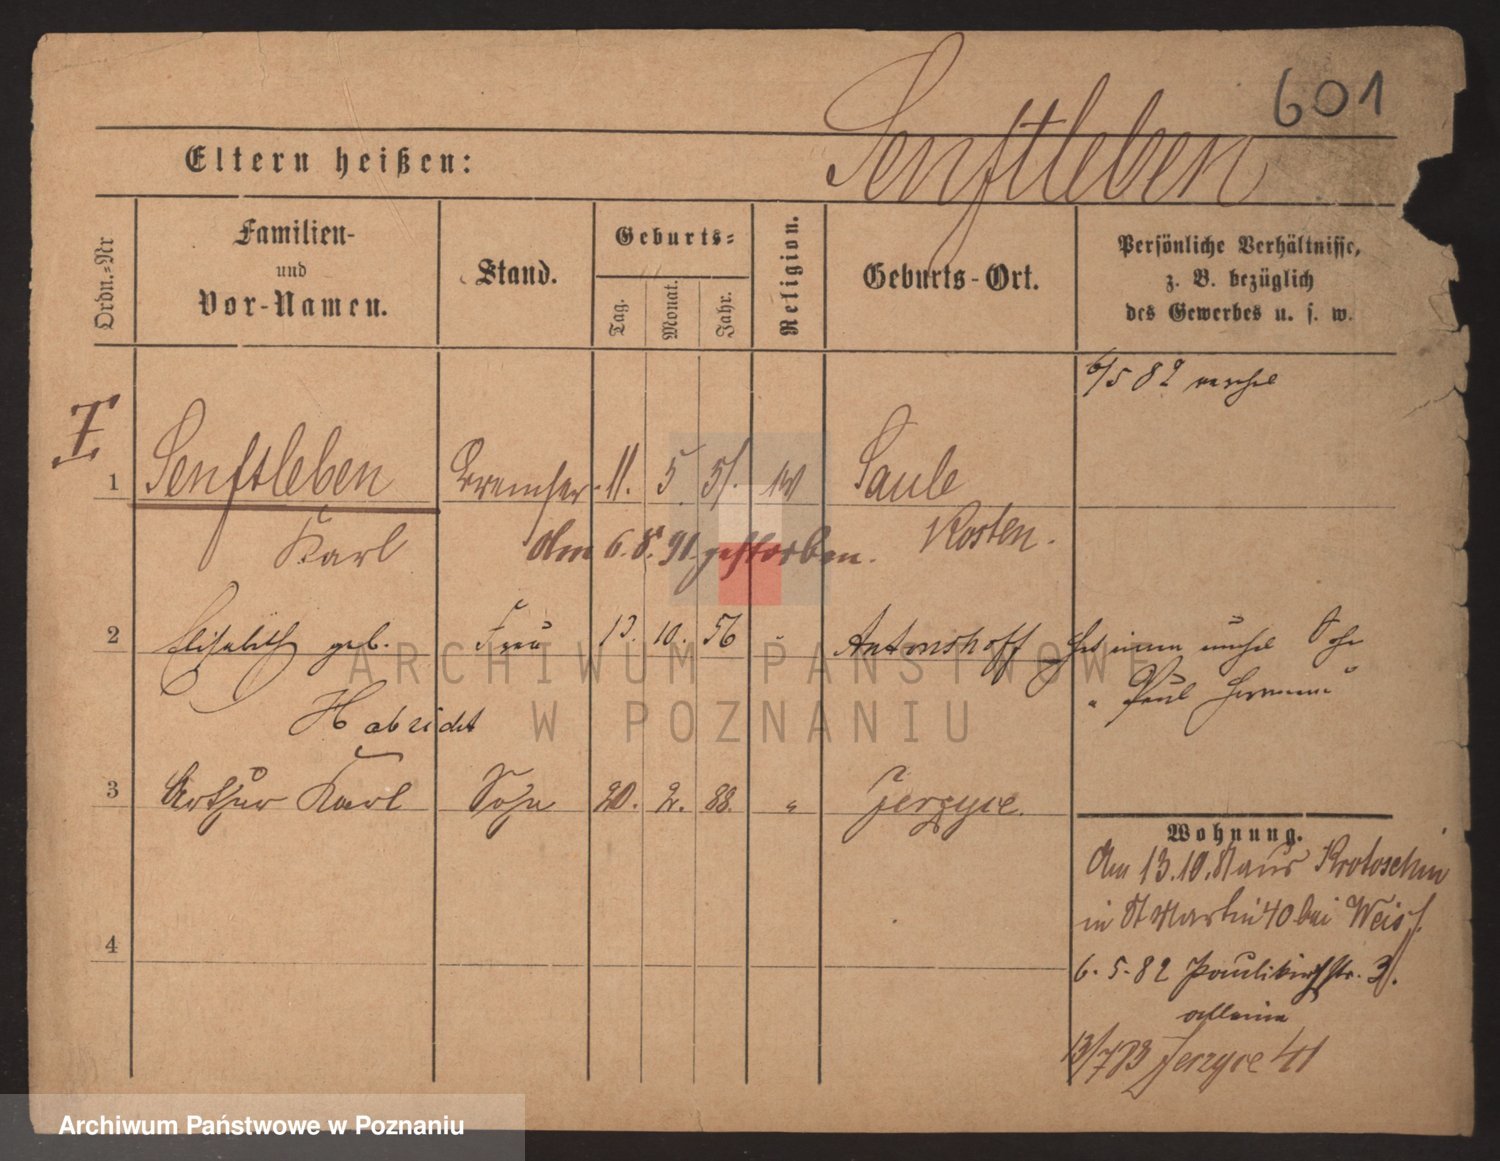 601
Senftleben
Eltern heißen:
Ordn.=Nr
Familien-
und
Vor-Namen.
Stand.
Geburts=
Tag.
Monat.
Jahr.
Religion.
Geburts-Ort.
Persönliche Verhältnisse,
z. B. bezüglich
des Gewerbes u. s. w.
6/5 82
I
1 Senftleben 11. 5 51. Saule
Karl Am 6. 8. 91 gestorben. Kosten.
2 Elisabeth geb. Frau 13. 10. 56 " Antonshoff
" Paul Hermann "
Habricht
3 Arthur Karl Sohn 20. 2. 88. " Jerzyce.
Wohnung.
Am 13.10.81 aus Krotoschin
in St Martin 40 bei Weiss.
4
6. 5. 82 Paulikirchstr. 3.
alleine
13/7 83 Jerzyce 41
ARCHIWUM PAŃSTWOWE
W POZNANIU
Archiwum Państwowe w Poznaniu